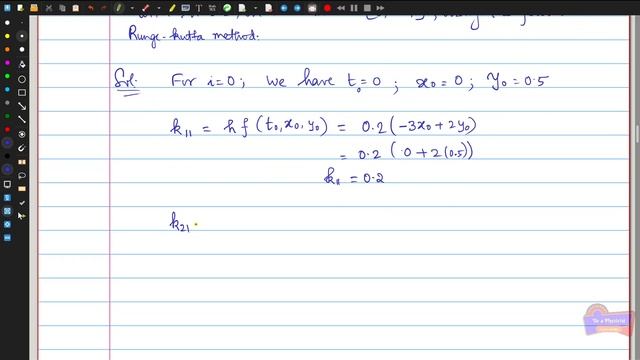 Runge-kutta method.
Sol. For i=0; we have t₀=0 ; x₀=0 ; y₀=0.5
k₁₁ = hf(t₀,x₀,y₀) = 0.2(-3x₀+2y₀)
= 0.2 (0+2(0.5))
k₁₁ = 0.2
k₂₁